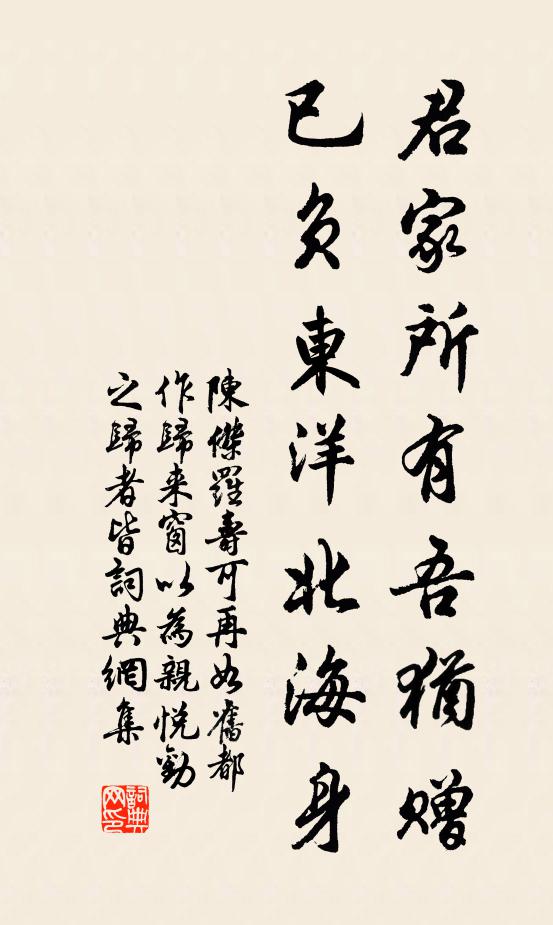 君家所有吾猶贈
已負東洋北海身
陳傑羅壽可再如舊都
作歸来窗以為親悦勸
之歸者皆詞典網集
詞典网印